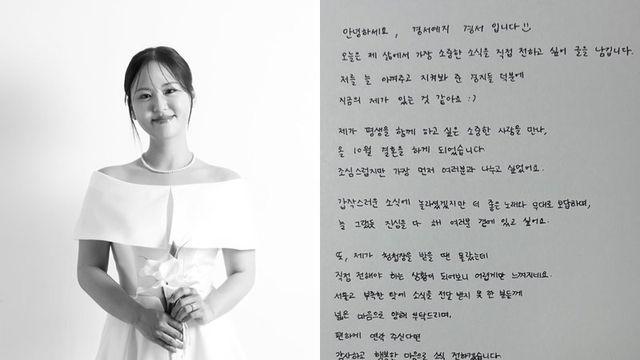 안녕하세요, 경서예지 경서 입니다
오늘은 제 삶에서 가장 소중한 소식을 직접 전하고 싶어 글을 남깁니다.
저를 늘 아껴주고 지켜봐 준 경지들 덕분에
지금의 제가 있는 것 같아요 :)
제가 평생을 함께 하고 싶은 소중한 사람을 만나,
올 10월 결혼을 하게 되었습니다
조심스럽지만 가장 먼저 여러분과 나누고 싶었어요.
갑작스러운 소식에 놀라셨겠지만 더 좋은 노래와 무대로 보답하며,
늘 그랬듯 진심을 다 해 여러분 곁에 있고 싶어요.
또, 제가 청첩장을 받을 땐 몰랐는데
직접 전해야 하는 상황이 되어보니 어렵게만 느껴지네요.
서툴고 부족한 탓에 소식을 전달 받지 못 한 분들께
넓은 마음으로 양해 부탁드리며,
편하게 연락 주신다면
감사하고 행복한 마음으로 소식 전하겠습니다